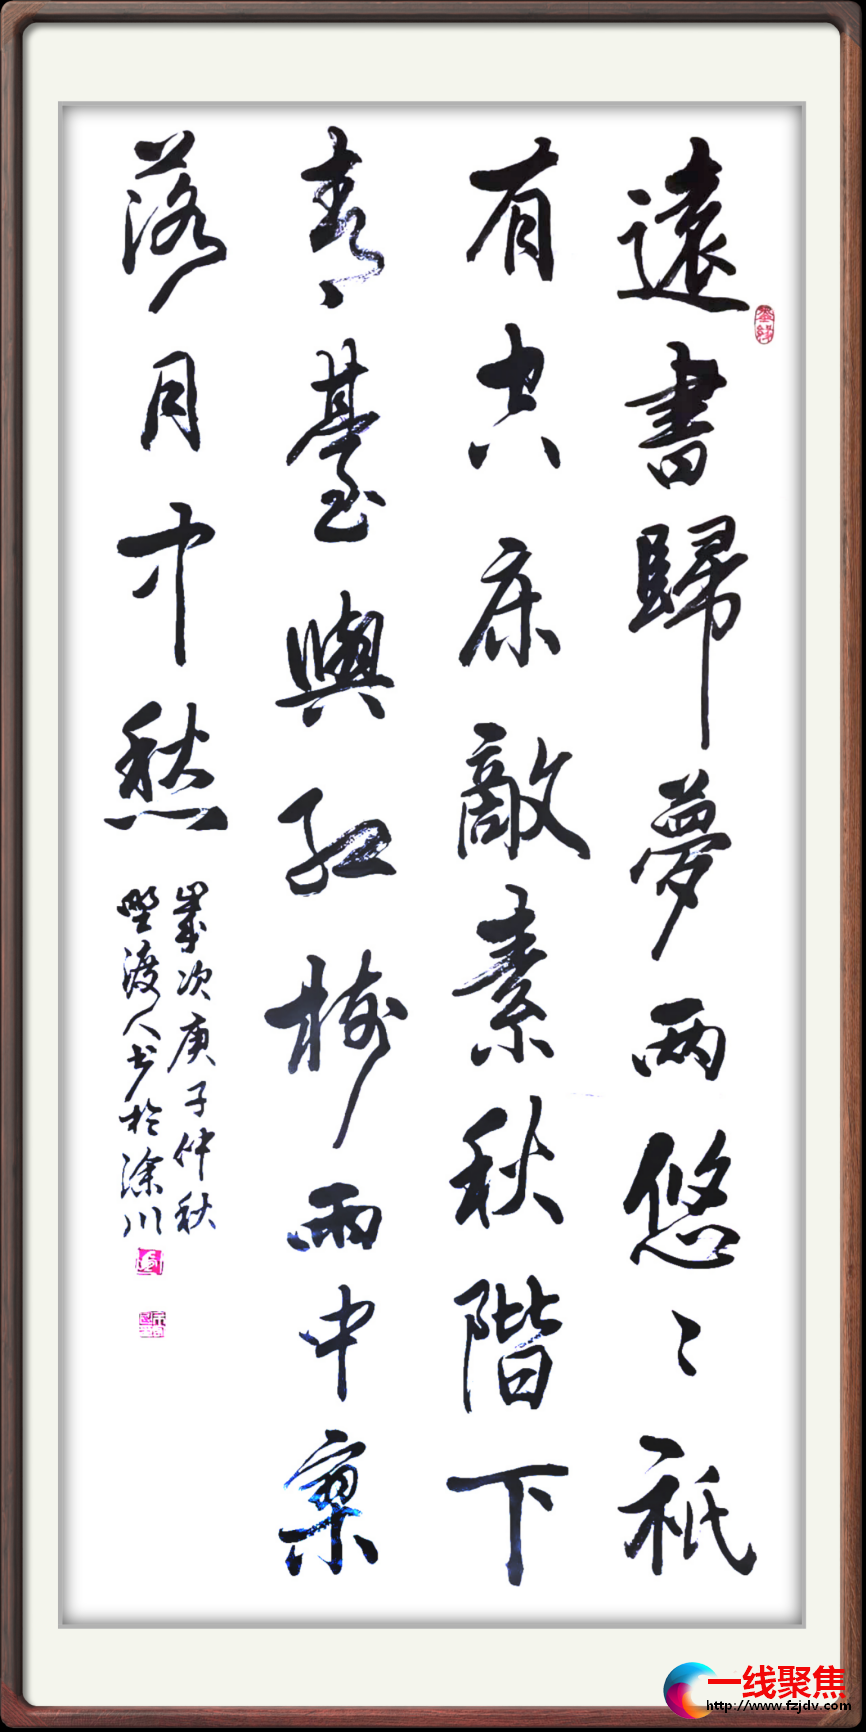 遠書歸夢两悠〻祇
有空床敵素秋階下
青臺與紅樹雨中寥
落月中愁
歲次庚子仲秋
野渡人书於涂川
一线聚焦
http://www.fzjdv.com